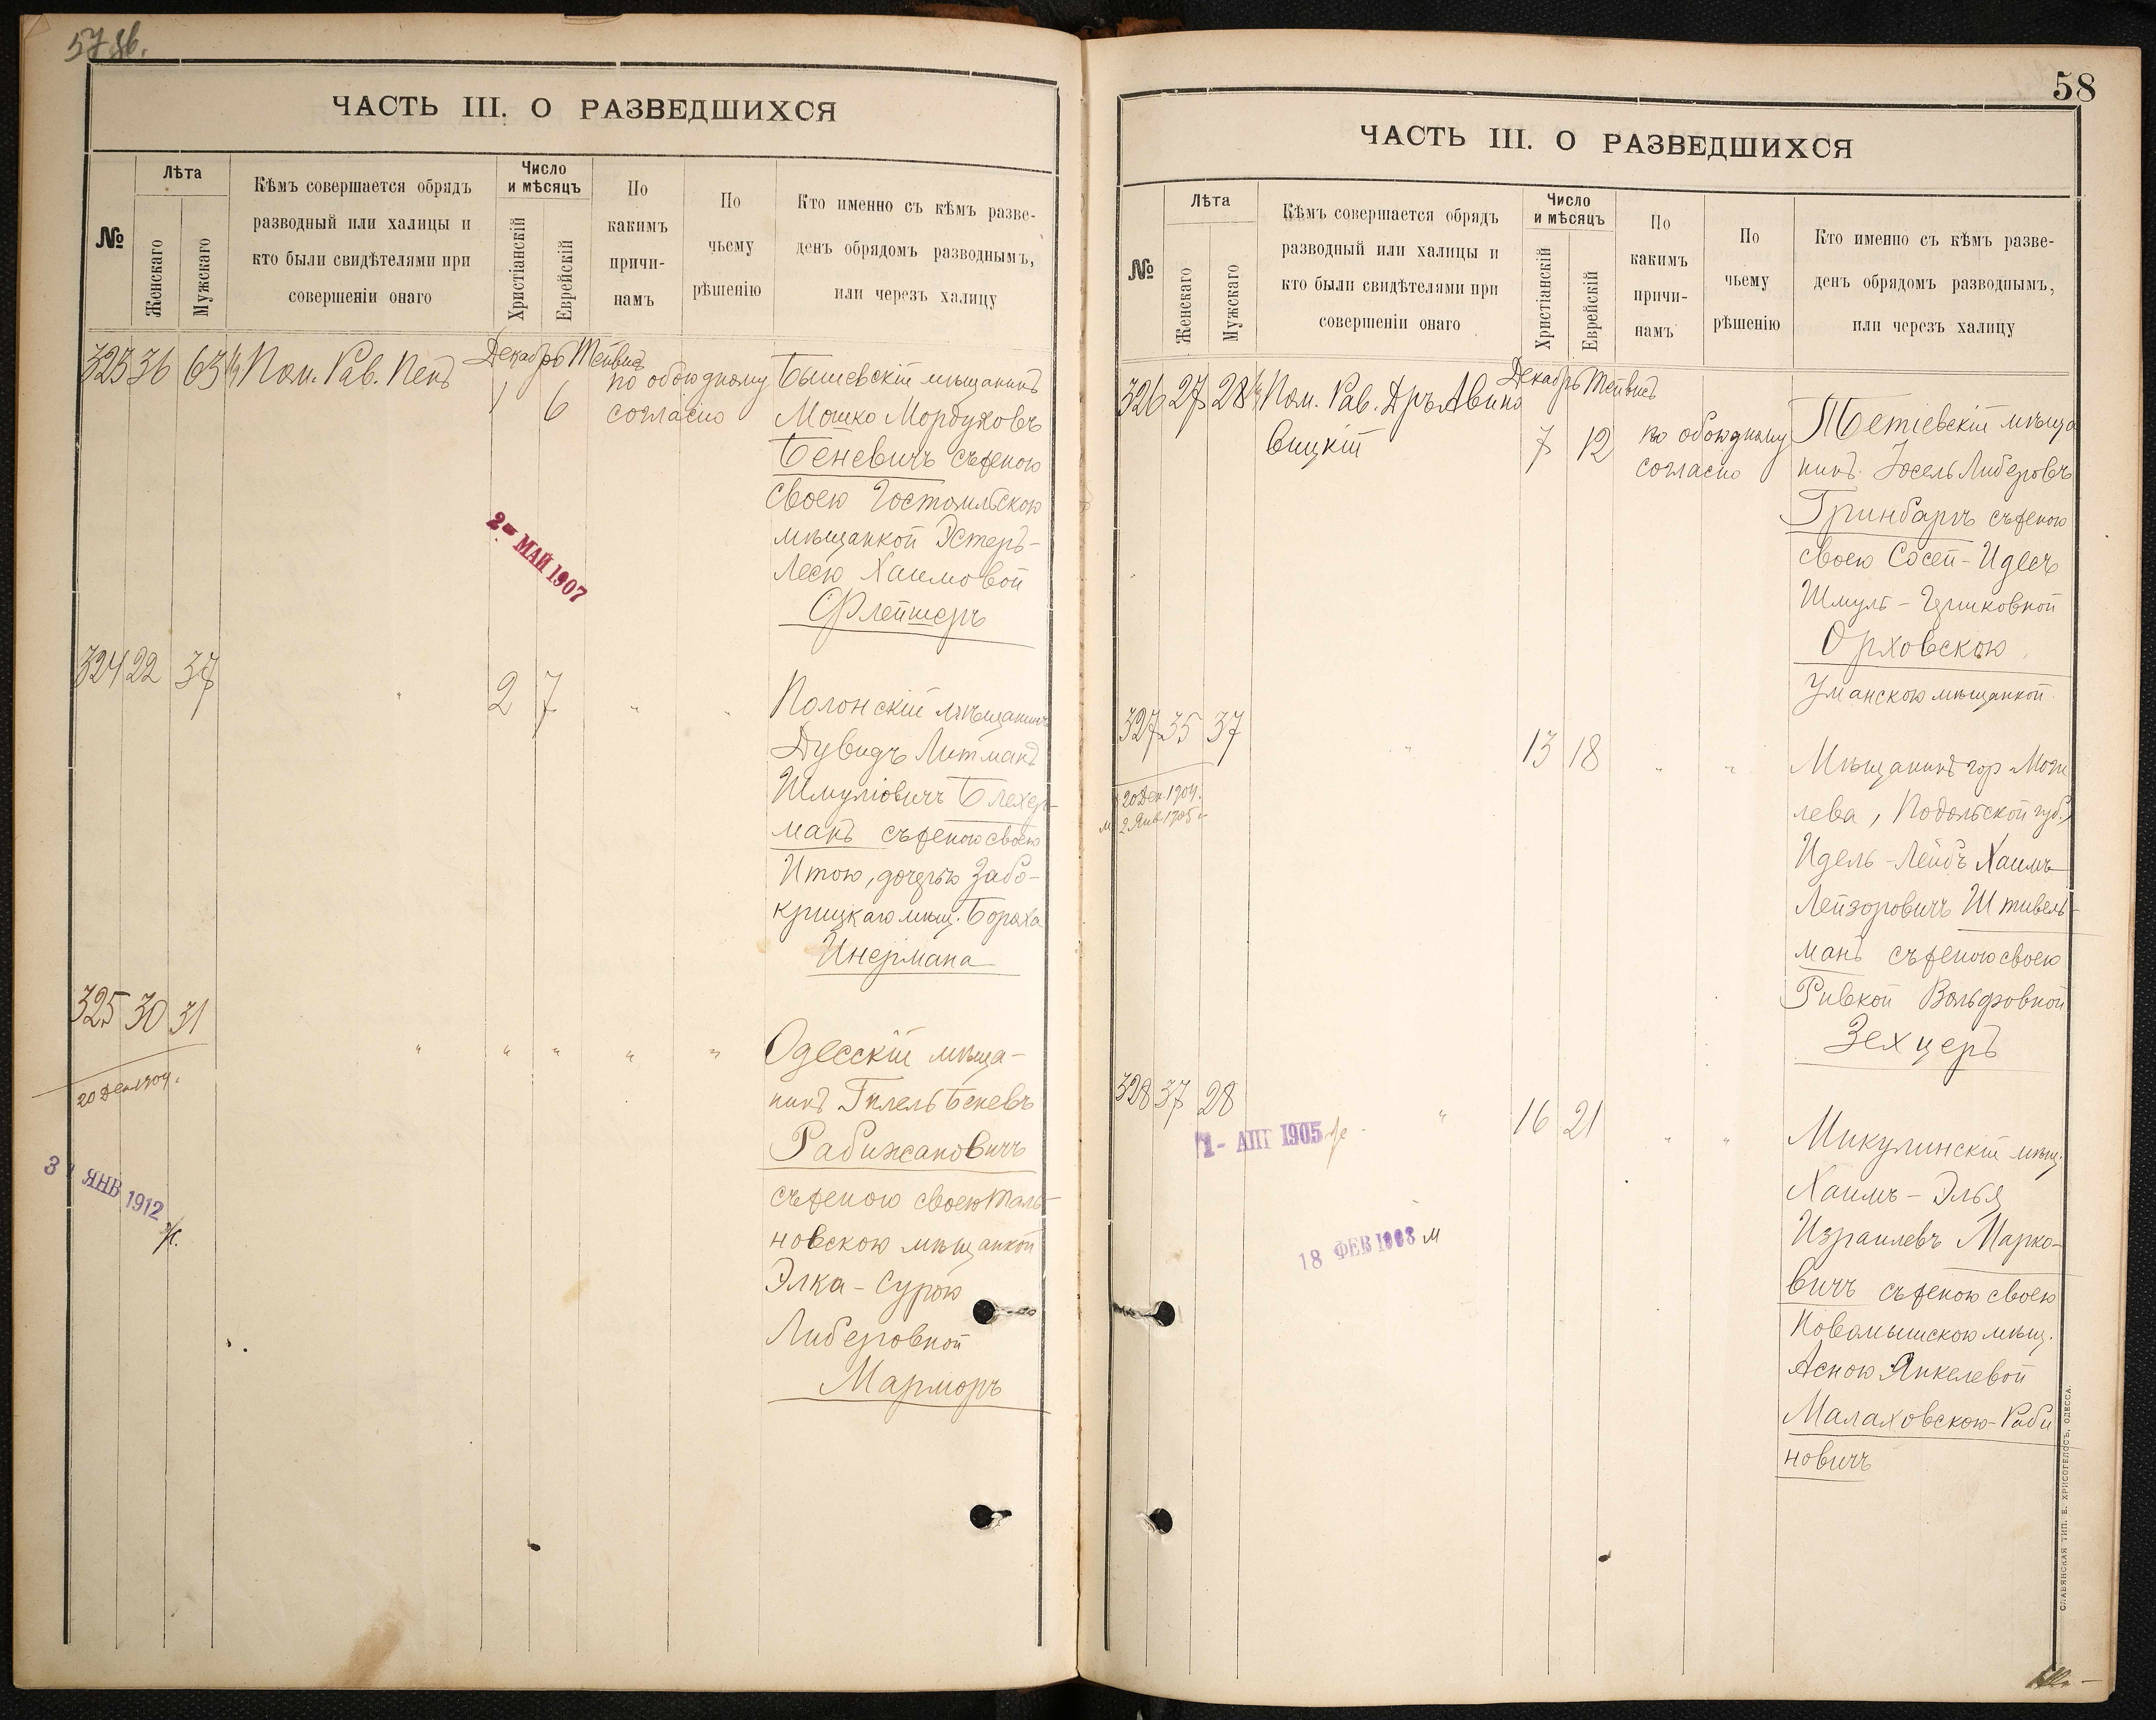 57 об.
ЧАСТЬ III. О РАЗВЕДШИХСЯ
№
Лѣта
Женскаго
Мужскаго
Кѣмъ совершается обрядъ
разводный или халицы и
кто были свидѣтелями при
совершеніи онаго
Число
и мѣсяцъ
Христіанскій
Еврейскій
По
какимъ
причи-
намъ
По
чьему
рѣшенію
Кто именно съ кѣмъ разве-
денъ обрядомъ разводнымъ,
или черезъ халицу
323 36 63½ Пом. Рав. Пенъ
Декабрь Тейвисъ
1 6
по обоюдному
согласію
Бышевскій мѣщанинъ
Мошко Мордуховъ
Беневичъ съ женою
своею Гостомльскою
мѣщанкой Эстеръ-
Лесю Хаимовой
Флейшеръ
2- МАЙ 1907
324 22 37 " 2 7 " "
Полонскій мѣщанинъ
Дувидъ Литманъ
Шмуліовичъ Блехер-
манъ съ женою своею
Итою, дочерью Забо-
крицкаго мѣщ. Бораха
Инермана
325 30 31 " " " " "
20 Дек. 1904.
31 ЯНВ 1912
ж.
Одесскій мѣща-
нинъ Гилель Беневъ
Рабижановичъ
съ женою своею Таль-
новскою мѣщанкой
Элка-Сурою
Либеровной
Марморъ
58
ЧАСТЬ III. О РАЗВЕДШИХСЯ
№
Лѣта
Женскаго
Мужскаго
Кѣмъ совершается обрядъ
разводный или халицы и
кто были свидѣтелями при
совершеніи онаго
Число
и мѣсяцъ
Христіанскій
Еврейскій
По
какимъ
причи-
намъ
По
чьему
рѣшенію
Кто именно съ кѣмъ разве-
денъ обрядомъ разводнымъ,
или черезъ халицу
326 27 28½ Пом. Рав. Дръ Авино
вицкій
Декабрь Тейвисъ
7 12
по обоюдному
согласію
Тетіевскій мѣща
нинъ Іосель Либеровъ
Гринбаргъ съ женою
своею Сосей-Идесъ
Шмуль-Герчковной
Орховскою
Уманскою мѣщанкой
327 35 37 " 13 18 " "
20 Дек. 1904.
м 2 Янв. 1905
Мѣщанинъ гор Моги
лева, Подольской губ.,
Идель-Лейбъ Хаимъ
Лейзоровичъ Штивель-
манъ съ женою своею
Ривкой Вольфовной
Зехцеръ
328 37 28 " 16 21 " "
1- АПР 1905 же
18 ФЕВ 1908 м
Микулинскій мѣщ.
Хаимъ-Элья
Израилевъ Марко-
вичъ съ женою своею
Новомышскою мѣщ.
Асною Янкелевой
Малаховскою-Раби
новичъ
СЛАВЯНСКАЯ ТИП. Е. ХРИСОГЕЛОСЪ, ОДЕССА.